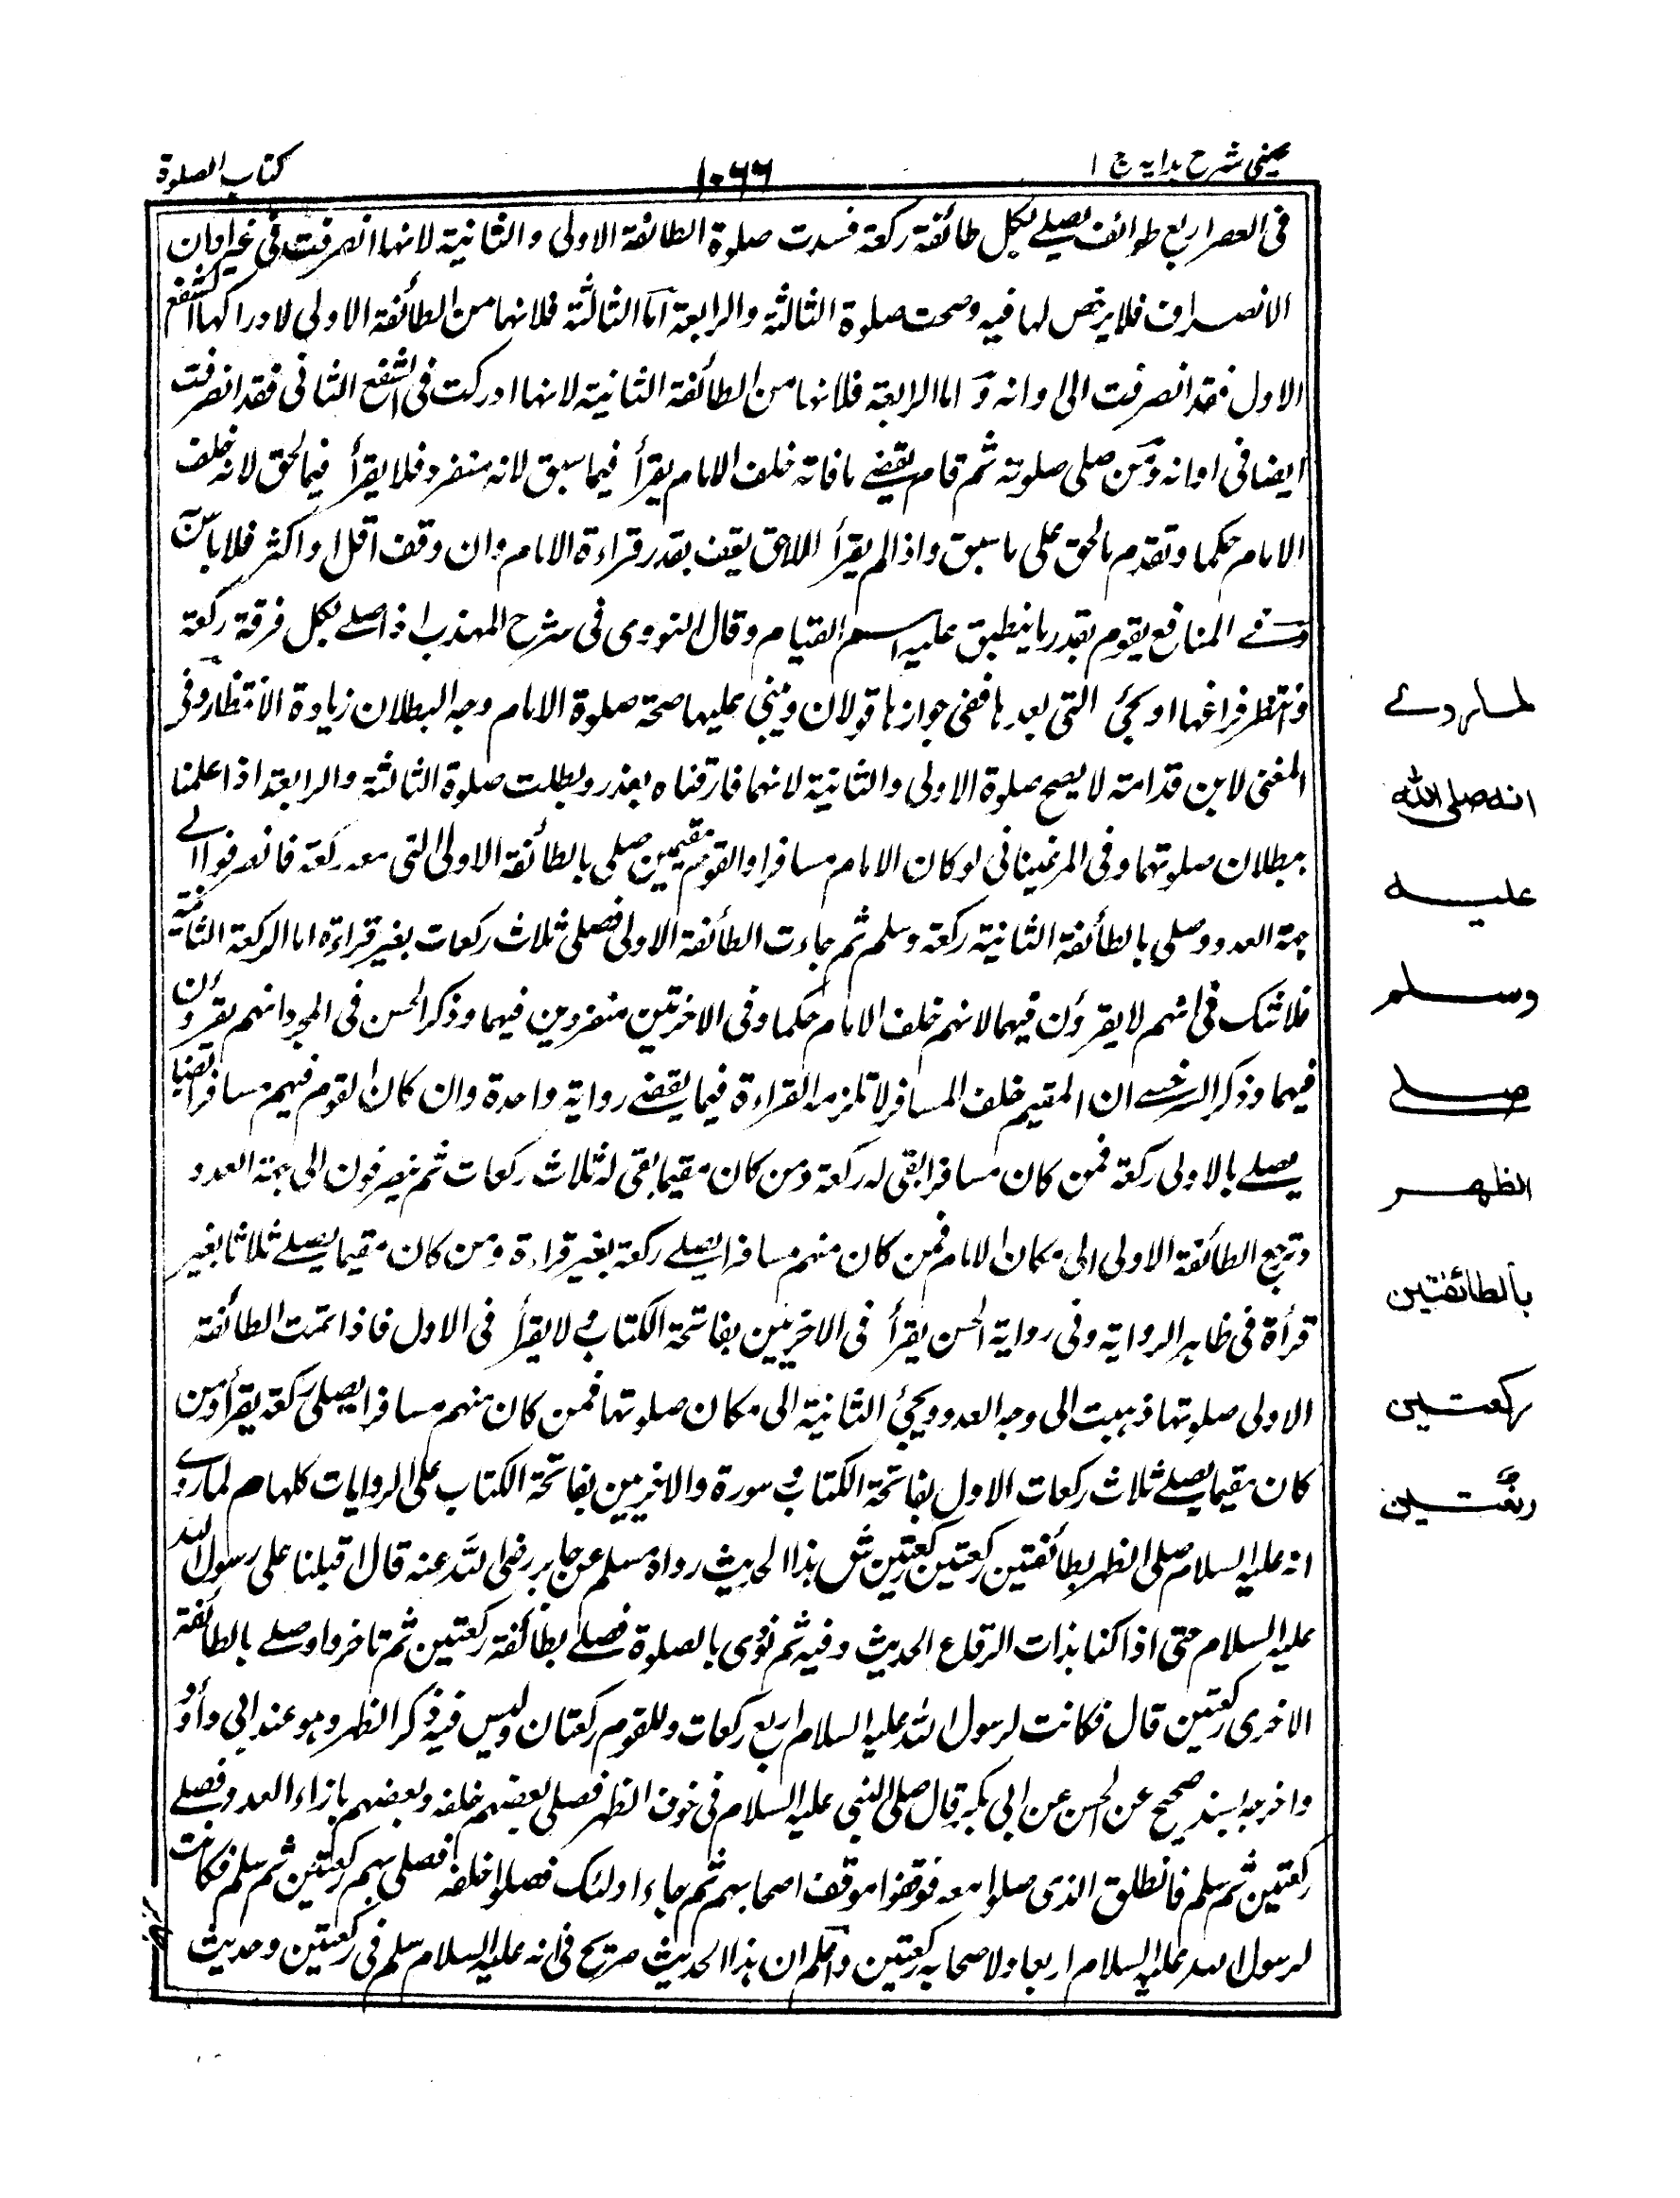 عینی شرح ہدایہ ج ۱
۱۰۶۶
کتاب الصلوة
فی العصر اربع طوائف یصلے بکل طائفة رکعة فسدت صلوة الطائفة الاولی والثانیة لانہا انصرفت فی غیر اوان
الانصراف فلا یرخص لہا فیہ وصحت صلوة الثالثة والرابعة اما الثالثة فلانہا من الطائفة الاولی لادراکہا الشفع
الاول فقد انصرفت الی اوانہ و اما الرابعة فلانہا من الطائفة الثانیة لانہا ادرکت فی الشفع الثانی فقد انصرفت
ایضا فی اوانہ ومن صلی صلوتہ ثم قام یقضے مافاتہ خلف الامام یقرأ فیما سبق لانہ منفرد فلا یقرأ فیما لحق لانہ خلف
الامام حکما وتقدم مالحق علی ماسبق واذا لم یقرأ اللاحق یقف بقدر قراءة الامام وان وقف اقل او اکثر فلا باس
وفے المنافع یقوم بقدر ما ینطبق علیہ اسم القیام وقال النووی فی شرح المہذب اذا صلے بکل فرقة رکعة
وانتظر فراغہا او یجئ التی بعدہا ففی جوازہا قولان ویبنی علیہا صحة صلوة الامام وجہ البطلان زیادة الانتظار وفی
المغنی لابن قدامة لا یصح صلوة الاولی والثانیة لانہما فارقناہ بعذر وبطلت صلوة الثالثة والرابعة اذا علمنا
ببطلان صلوتہما وفی المرغینانی لو کان الامام مسافرا والقوم مقیمین صلی بالطائفة الاولی التی معہ رکعة فانصرفوا الے
جہة العدو وصلی بالطائفة الثانیة رکعة وسلم ثم جاءت الطائفة الاولی فصلی ثلاث رکعات بغیر قراءة اما الرکعة الثانیة
فلا شک فی انہم لا یقرؤن فیہا لانہم خلف الامام حکما وفی الاخرتین منفردین فیہما وذکر الحسن فی المجرد انہم یقرؤن
فیہما وذکر السرخسے ان المقیم خلف المسافر لا تلزمہ القراءة فیما یقضے روایة واحدة وان کان القوم فیہم مسافر ایضا
یصلے بالاولی رکعة فمن کان مسافرا بقی لہ رکعة ومن کان مقیما بقی لہ ثلاث رکعات ثم ینصرفون الی جہة العدو
وترجع الطائفة الاولی الی مکان الامام فمن کان منہم مسافرا یصلے رکعة بغیر قراءة ومن کان مقیما یصلے ثلاثا بغیر
قرأة فی ظاہر الروایة وفی روایة الحسن یقرأ فی الاخریین بفاتحة الکتاب و لا یقرأ فی الاول فاذا تمت الطائفة
الاولی صلوتہا ذہبت الی وجہ العدو ویجئ الثانیة الی مکان صلوتہا فمن کان منہم مسافرا یصلی رکعة یقرأ ومن
کان مقیما یصلے ثلاث رکعات الاول بفاتحة الکتاب و سورة والاخریین بفاتحة الکتاب علی الروایات کلہا م لما روے
انہ علیہ السلام صلی الظہر بطائفتین رکعتین رکعتین ش ہذا الحدیث رواہ مسلم عن جابر رضی اللہ عنہ قال اقبلنا علی رسول اللہ
علیہ السلام حتی اذا کنا بذات الرقاع الحدیث وفیہ ثم نودی بالصلوة فصلے بطائفة رکعتین ثم تاخروا وصلے بالطائفة
الاخری رکعتین قال فکانت لرسول اللہ علیہ السلام اربع رکعات وللقوم رکعتان ولیس فیہ ذکر الظہر وہو عند ابی داؤد
واخرجہ بسند صحیح عن الحسن عن ابی بکرة قال صلی النبی علیہ السلام فی خوف الظہر فصلی بعضہم خلفہ وبعضہم بازاء العدو فصلے
رکعتین ثم سلم فانطلق الذی صلوا معہ فوقفوا موقف اصحابہم ثم جاء اولئک فصلوا خلفہ فصلی بہم رکعتین ثم سلم فکانت
لرسول اللہ علیہ السلام اربعا ولاصحابہ رکعتین واعلم ان ہذا الحدیث صریح فی انہ علیہ السلام سلم فی رکعتین وحدیث
لماروے
انه صلی الله
علیه
وسلم
صلے
الظهر
بالطائفتین
رکعتین
رکعتین